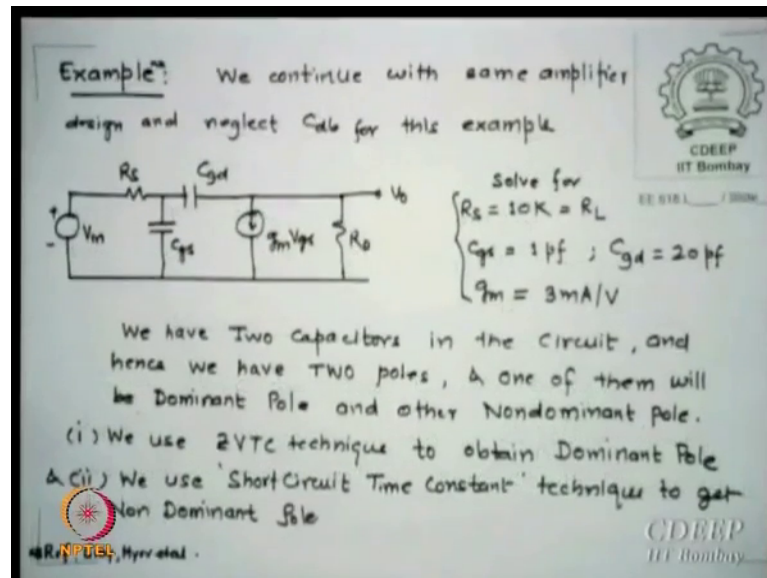 Example: We continue with same amplifier
design and neglect Cdb for this example
CDEEP
IIT Bombay
EE 618 L
Rs
Cgd
Vo
Vin
Cgs
gmVgs
Ro
Solve for
Rs = 10K = RL
Cgs = 1pf ; Cgd = 20pf
gm = 3mA/V
We have Two capacitors in the circuit, and
hence we have TWO poles, & one of them will
be Dominant Pole and other Nondominant pole.
(i) We use ZVTC technique to obtain Dominant Pole
& (ii) We use 'Short Circuit Time Constant' technique to get
Non Dominant Pole
NPTEL
CDEEP
IIT Bombay